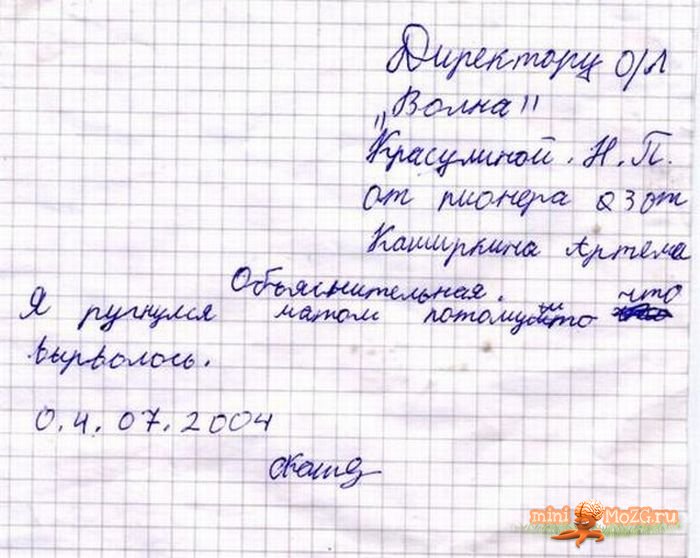 Директору о/л
„Волна"
Красулиной. Н. П.
от пионера 23от
Каширкина Артема
Объяснительная.
Я ругнулся матом потому что
вырволось.
0.4.07.2004
mini MoZG.ru